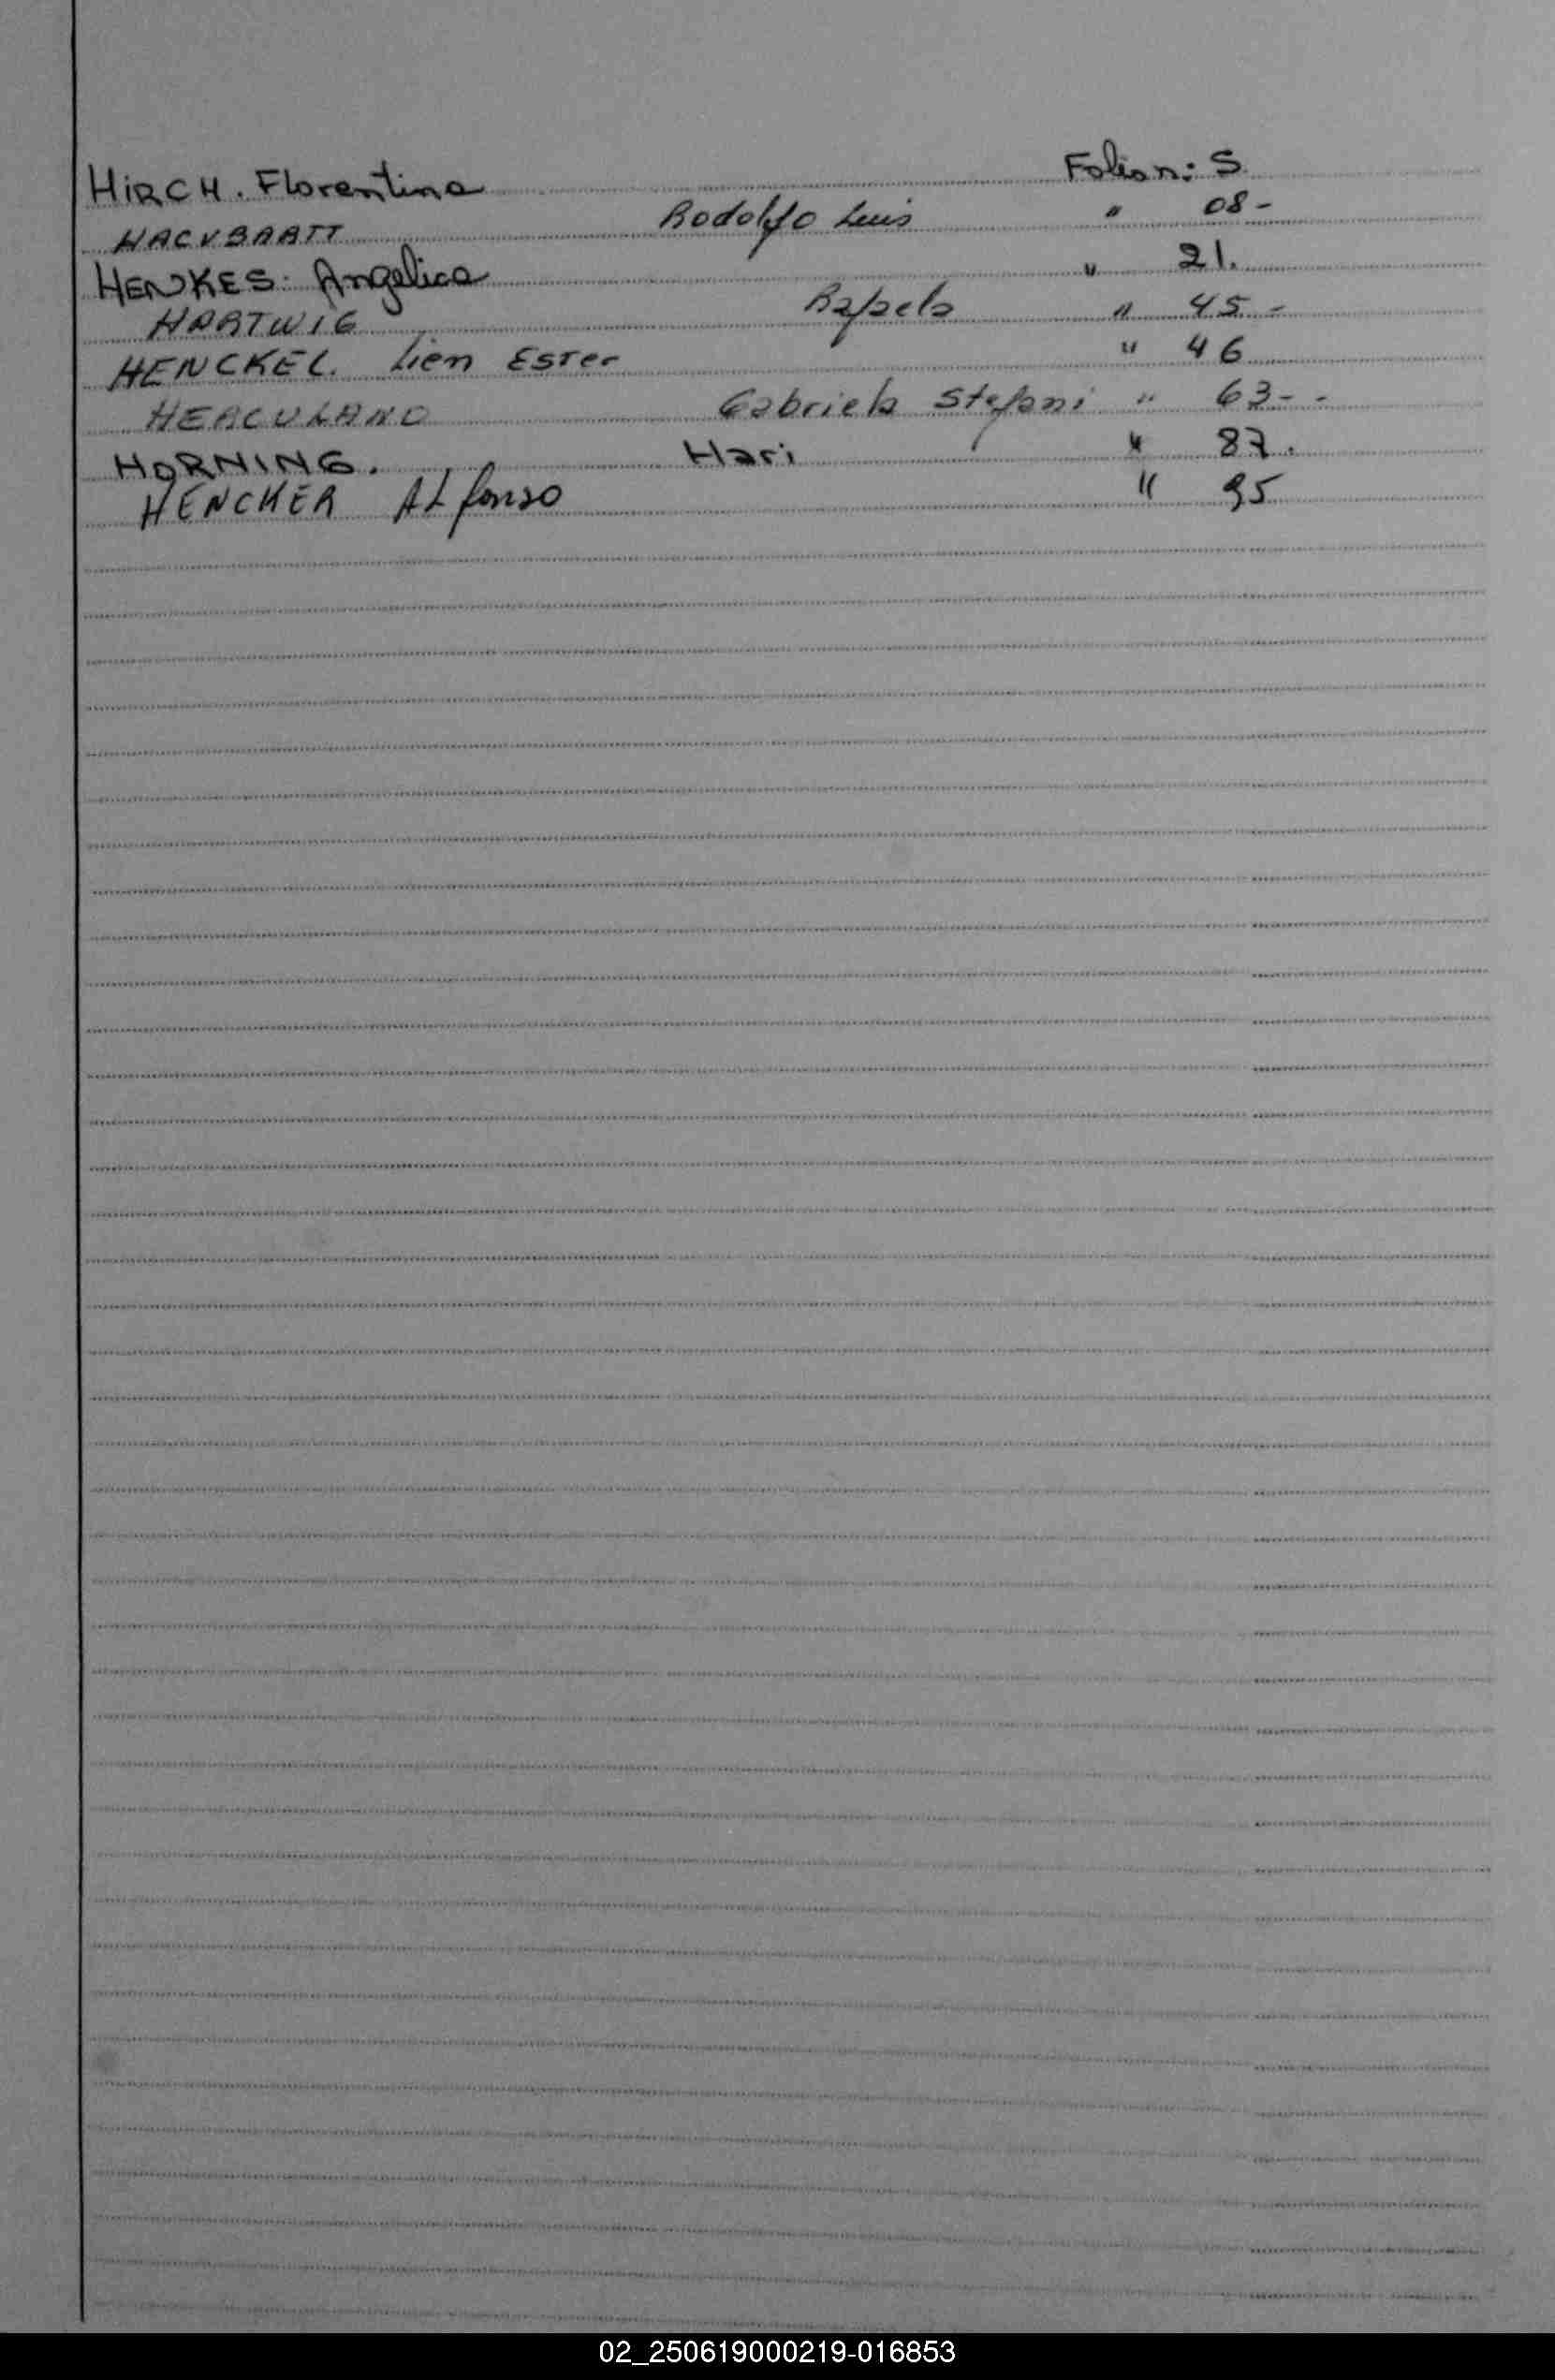 HiRCH. Florentina Folio n: 5
HACVBARTT Rodolfo Luis " 08-
HENKES: Angelica " 21.
HARTWIG Rafaela " 45-
HENCKEL. Lien Ester " 46
HERCULANO Gabriela Stefani " 63--
HORNING. Hari " 87.
HENCKER ALfonso " 95
02_250619000219-016853